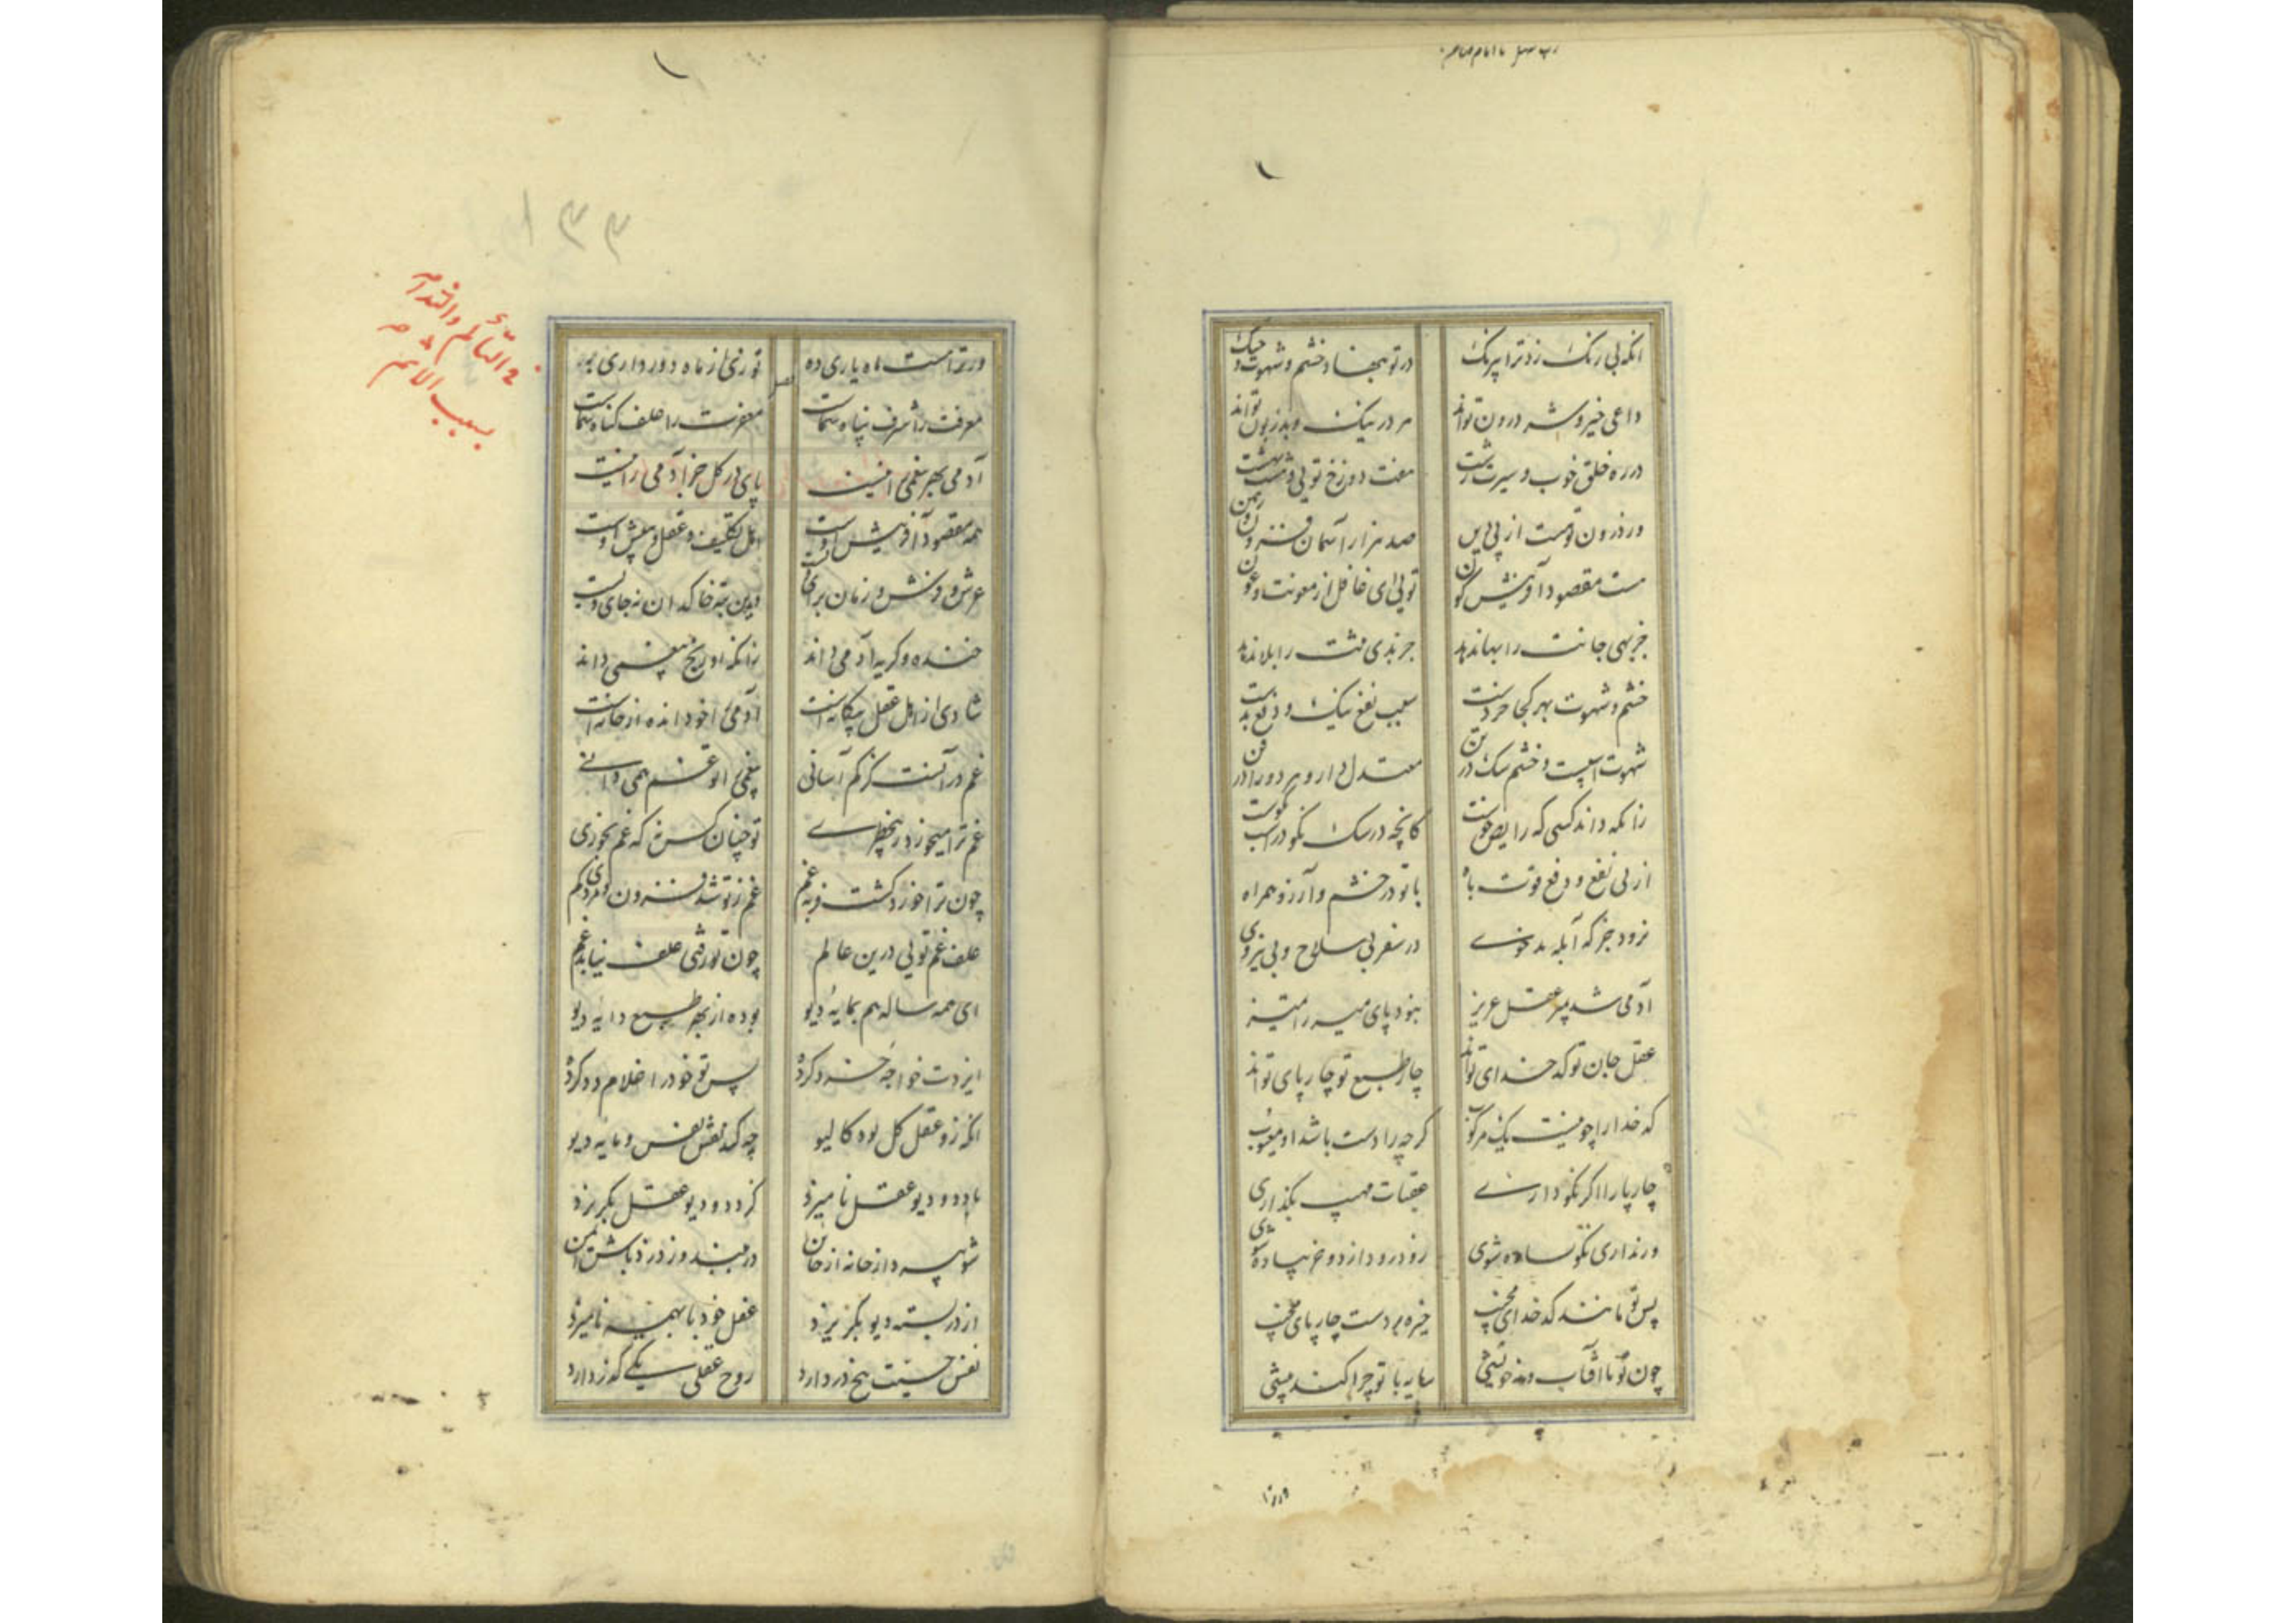 انکه بی رنک زد ترا بیرنک در تو بنهاد خشم و شهوت و جنک
داعی خیر و شر درون تواند هر دو در نیک و بد زبون تواند
در ره خلق خوب و سیرت زشت هفت دوزخ تویی و هشت بهشت
در درون توهست از پی دین صد هزار آسمان فزون و زمین
هست مقصود آفرینش کون تویی ای غافل از معونت و عون
جز بهی جانت را بها ندهد جز بدی مثت را بلا ندهد
خشم و شهوت بهر کجا خردست سبب نفع نیک و دفع بدست
شهوت اسپست و خشم سک در تن معتدل دار هر دو را در فن
زانکه داند کسی که رایض خوست کانچه در سک نکو در اسب نکوست
از پی نفع و دفع قوت باه با تو در خشم و آرزو همراه
نرود جز که آبله بدخوی در سفر بی سلاح و بی نیروی
آدمی شد پسر عقل عزیز نبود پای میر را تمییز
عقل جان تو کدخدای تواند چار طبع تو چارپای تواند
کدخدا را چو نیست یک مرکوب کرچه راد ست باشد او معیوب
چارپا را اکر نکو داری عقبات مهیب بکذاری
ور نداری نکو ساده شوی زود رود از دو خر پیاده شوی
پس تو مانند کدخدای مخسب خیره بر دست چارپای مخسب
چون تو با آفتاب و مه خویشی سایه با تو چرا کند پیشی
ور ترا هست ماه یاری ده تو زنی از ماه دور داری به
معرفت را شرف پناه شماست مغفرت را علف کناه شماست
آدمی بهر بی غمی را نیست پای در کل جز آدمی را نیست
همه مقصود آفرینش اوست اهل تکلیف و عقل و بینش اوست
عرش و فرش و زمان برای ویست وین تبه خاکدان نه جای ویست
خنده و کریه آدمی داند زانکه او رنج بیغمی داند
شادی از اهل عقل بیکانه است آدمی را خود انده از خانه است
غم در آنست کز کم آسانی بیغمی را تو غم همی دانی
غم ترا میخورد ز بیخطری تو چنان کس نه که غم نخوری
چون ترا خورد کشت فربه غم غم ز تو شد فزون و تو می کم
علف غم تویی درین عالم چون تو رفتی علف نیابد غم
ای همه ساله هم بمایه دیو بوده از بهر طبع دایه دیو
ایزدت خواجه خرد کرده پس تو خود را غلام دد کرده
انکه زو عقل کل بود کالیو چه کند نقش نفس و مایه دیو
با دد و دیو عقل نامیزد کز دد و دیو عقل بکریزد
شو بپرداز خانه از خاین در ببند و ز دزد باش ایمن
از در بسته دیو بکریزد عقل خود با بهیمه نامیزد
نفس حسیت پنج در دارد روح عقلی یکی کذر دارد
فی التألم والندامه
بسبب الاثم
۱۳۳